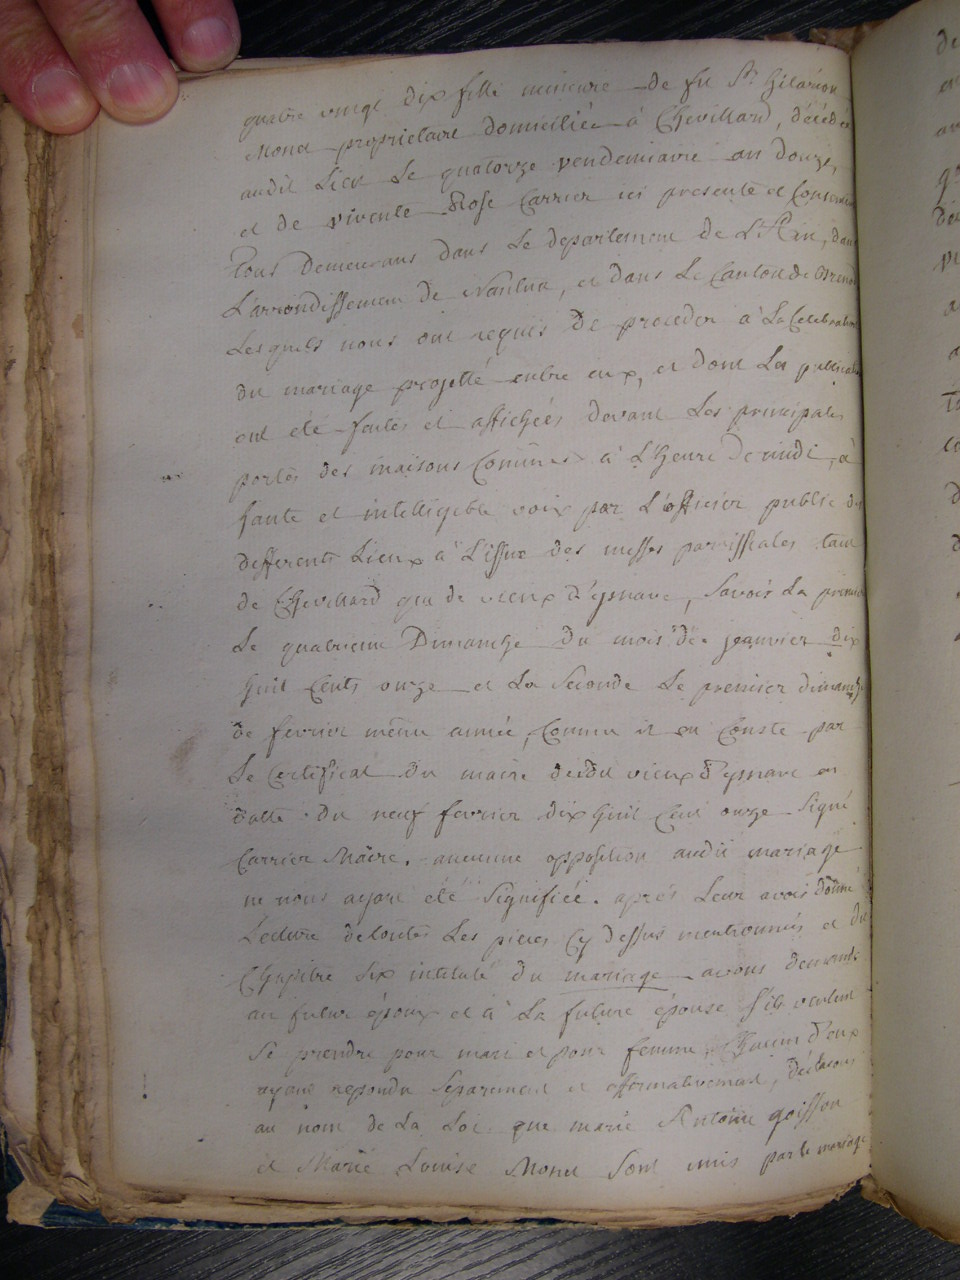 quatre vingt dix fille mineure de feu Sr hilarion
Monet proprietaire domiciliée à Chevillard, décédé
audit Lieu Le quatorze vendemiaire an douze,
et de vivente Rose Carrier ici presente et Consentante
Tous Demeurans dans Le departement de L'Ain, dans
L'arrondissement de Nantua, et dans Le Canton de Brenod
Lesquels nous ont requis de proceder à La Celebration
du mariage projetté entre eux, et dont Les publications
ont été faites et affichées devant Les principales
portes des maisons Communes à L'heure de midi, à
haute et intelligible voix par L'officier public des
differents Lieux à L'issue des messes paroissiales tant
de Chevillard que de vieux D'ysnave, Savoir La premiere
Le quatrieme Dimanche du mois de janvier dix
huit Cents onze et La Seconde Le premier dimanche
de fevrier même année, Comme il en Conste par
Le Certificat du maire dudit vieux D'ysnave en
datte du neuf fevrier dix huit Cent onze Signé
Carrier Maire. aucunne opposition audit mariage
ne nous ayant été Signifiée. après Leur avoir donné
Lecture de toutes Les pieces Cy dessus mentionnées et du
Chapitre Six intitulé du mariage avons demandé
au futur époux et à La future épouse S'ils veulent
Se prendre pour mari et pour femme, Chacun d'eux
ayant repondu Separement et affirmativement, déclarons
au nom de La Loi que marie Antoine goiffon
et Marie Louise Monet Sont unis par le mariage